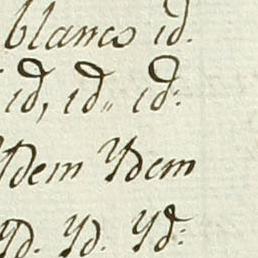 blanco id.
id, id,, id:
Ydem Ydem
Yd. Yd. Yd: